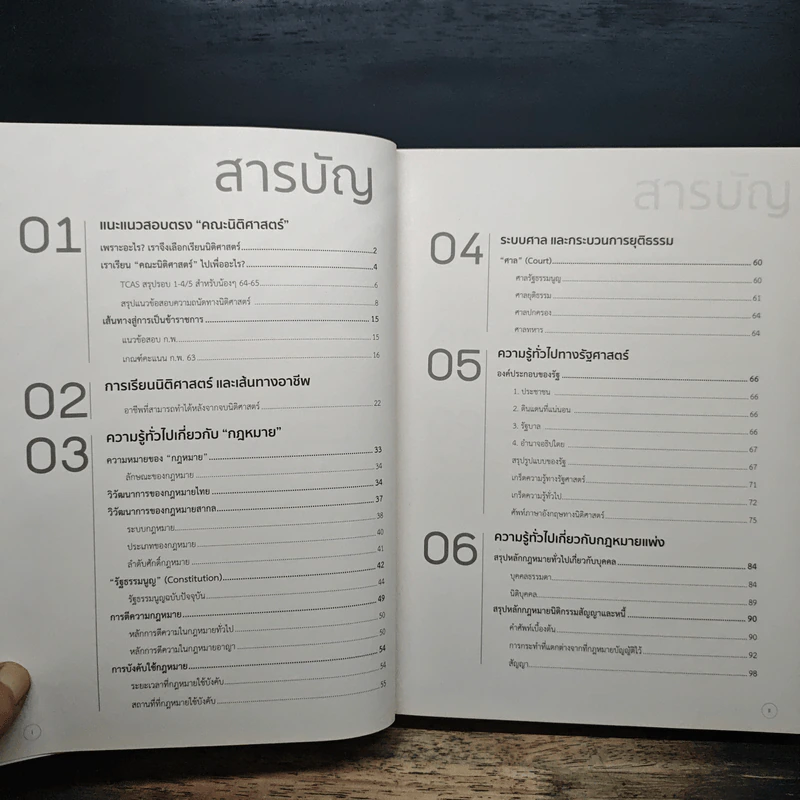 สารบัญ
01 แนะแนวสอบตรง “คณะนิติศาสตร์”
เพราะอะไร? เราจึงเลือกเรียนนิติศาสตร์ 2
เราเรียน “คณะนิติศาสตร์” ไปเพื่ออะไร? 4
TCAS สรุปรอบ 1-4/5 สำหรับน้องๆ 64-65 6
สรุปแนวข้อสอบความถนัดทางนิติศาสตร์ 8
เส้นทางสู่การเป็นข้าราชการ 15
แนวข้อสอบ ก.พ. 15
เกณฑ์คะแนน ก.พ. 63 16
02 การเรียนนิติศาสตร์ และเส้นทางอาชีพ
อาชีพที่สามารถทำได้หลังจากจบนิติศาสตร์ 22
03 ความรู้ทั่วไปเกี่ยวกับ “กฎหมาย”
ความหมายของ “กฎหมาย” 33
ลักษณะของกฎหมาย 34
วิวัฒนาการของกฎหมายไทย 34
วิวัฒนาการของกฎหมายสากล 37
ระบบกฎหมาย 38
ประเภทของกฎหมาย 40
ลำดับศักดิ์กฎหมาย 41
“รัฐธรรมนูญ” (Constitution) 42
รัฐธรรมนูญฉบับปัจจุบัน 44
การตีความกฎหมาย 49
หลักการตีความในกฎหมายทั่วไป 50
หลักการตีความในกฎหมายอาญา 50
การบังคับใช้กฎหมาย 54
ระยะเวลาที่กฎหมายใช้บังคับ 54
สถานที่ที่กฎหมายใช้บังคับ 55
สารบัญ
04 ระบบศาล และกระบวนการยุติธรรม
“ศาล” (Court) 60
ศาลรัฐธรรมนูญ 60
ศาลยุติธรรม 61
ศาลปกครอง 64
ศาลทหาร 64
05 ความรู้ทั่วไปทางรัฐศาสตร์
องค์ประกอบของรัฐ 66
1. ประชาชน 66
2. ดินแดนที่แน่นอน 66
3. รัฐบาล 66
4. อำนาจอธิปไตย 67
สรุปรูปแบบของรัฐ 67
เกร็ดความรู้ทางรัฐศาสตร์ 71
เกร็ดความรู้ทั่วไป 72
ศัพท์ภาษาอังกฤษทางนิติศาสตร์ 75
06 ความรู้ทั่วไปเกี่ยวกับกฎหมายแพ่ง
สรุปหลักกฎหมายทั่วไปเกี่ยวกับบุคคล 84
บุคคลธรรมดา 84
นิติบุคคล 89
สรุปหลักกฎหมายนิติกรรมสัญญาและหนี้ 90
คำศัพท์เบื้องต้น 90
การกระทำที่แตกต่างจากที่กฎหมายบัญญัติไว้ 92
สัญญา 98